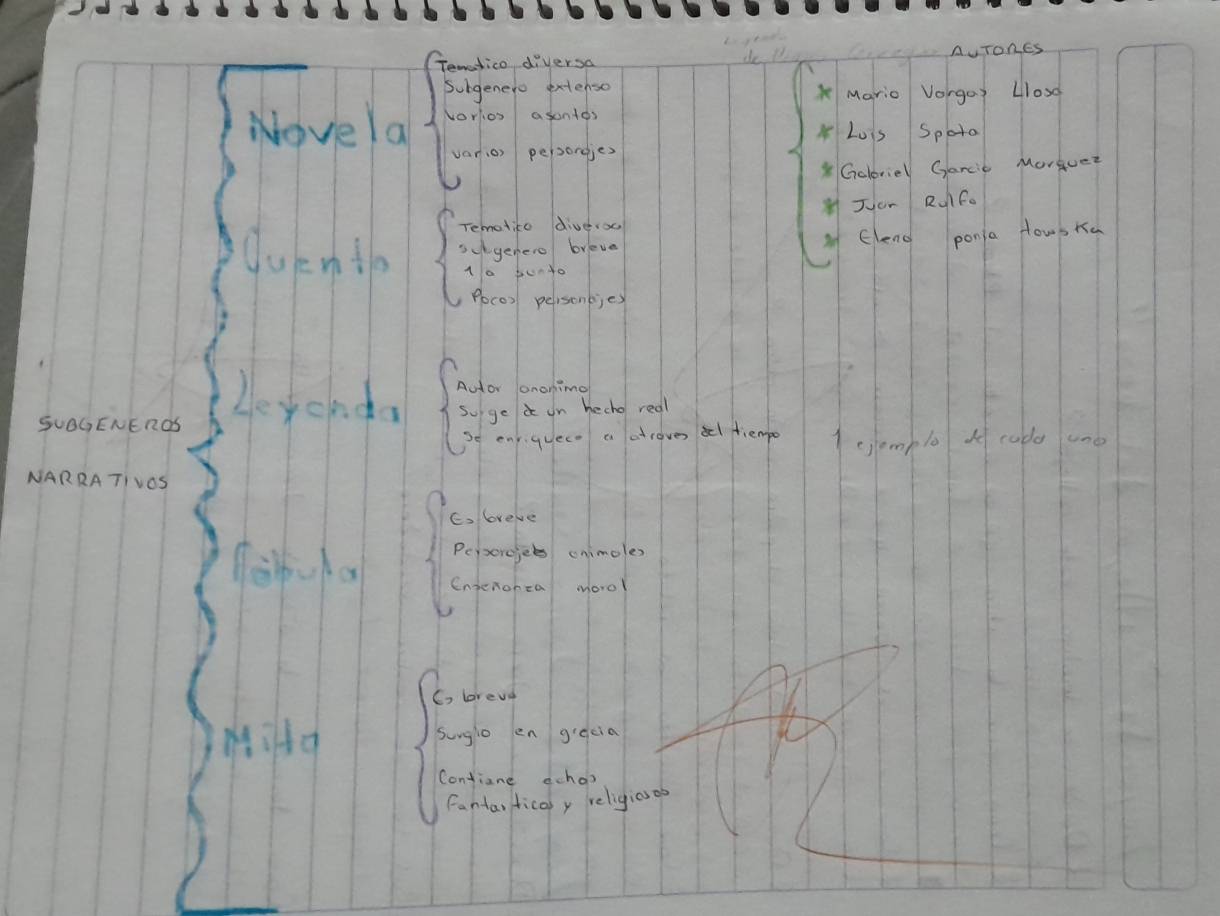 SUBGENEROS
NARRATIVOS
Novela
Tematico diversa
Subgenero extenso
varios asuntos
varios personajes
AUTORES
* Mario Vargas Llosa
* Luis Spota
* Gabriel Garcia Marquez
* Juan Rulfo
* Elena ponia towska
Cuento
Tematico diversa
subgenero breve
1 a sunto
Pocos personajes
Leyenda
Autor anonimo
Surge de un hecho real
Se enriquece a atraves del tiempo
1 ejemplo de cada uno
Fábula
Es breve
Personajes animales
Enseñanza moral
Mito
Es breve
Surgio en grecia
Contiene echos
Fantasticos y religiosos